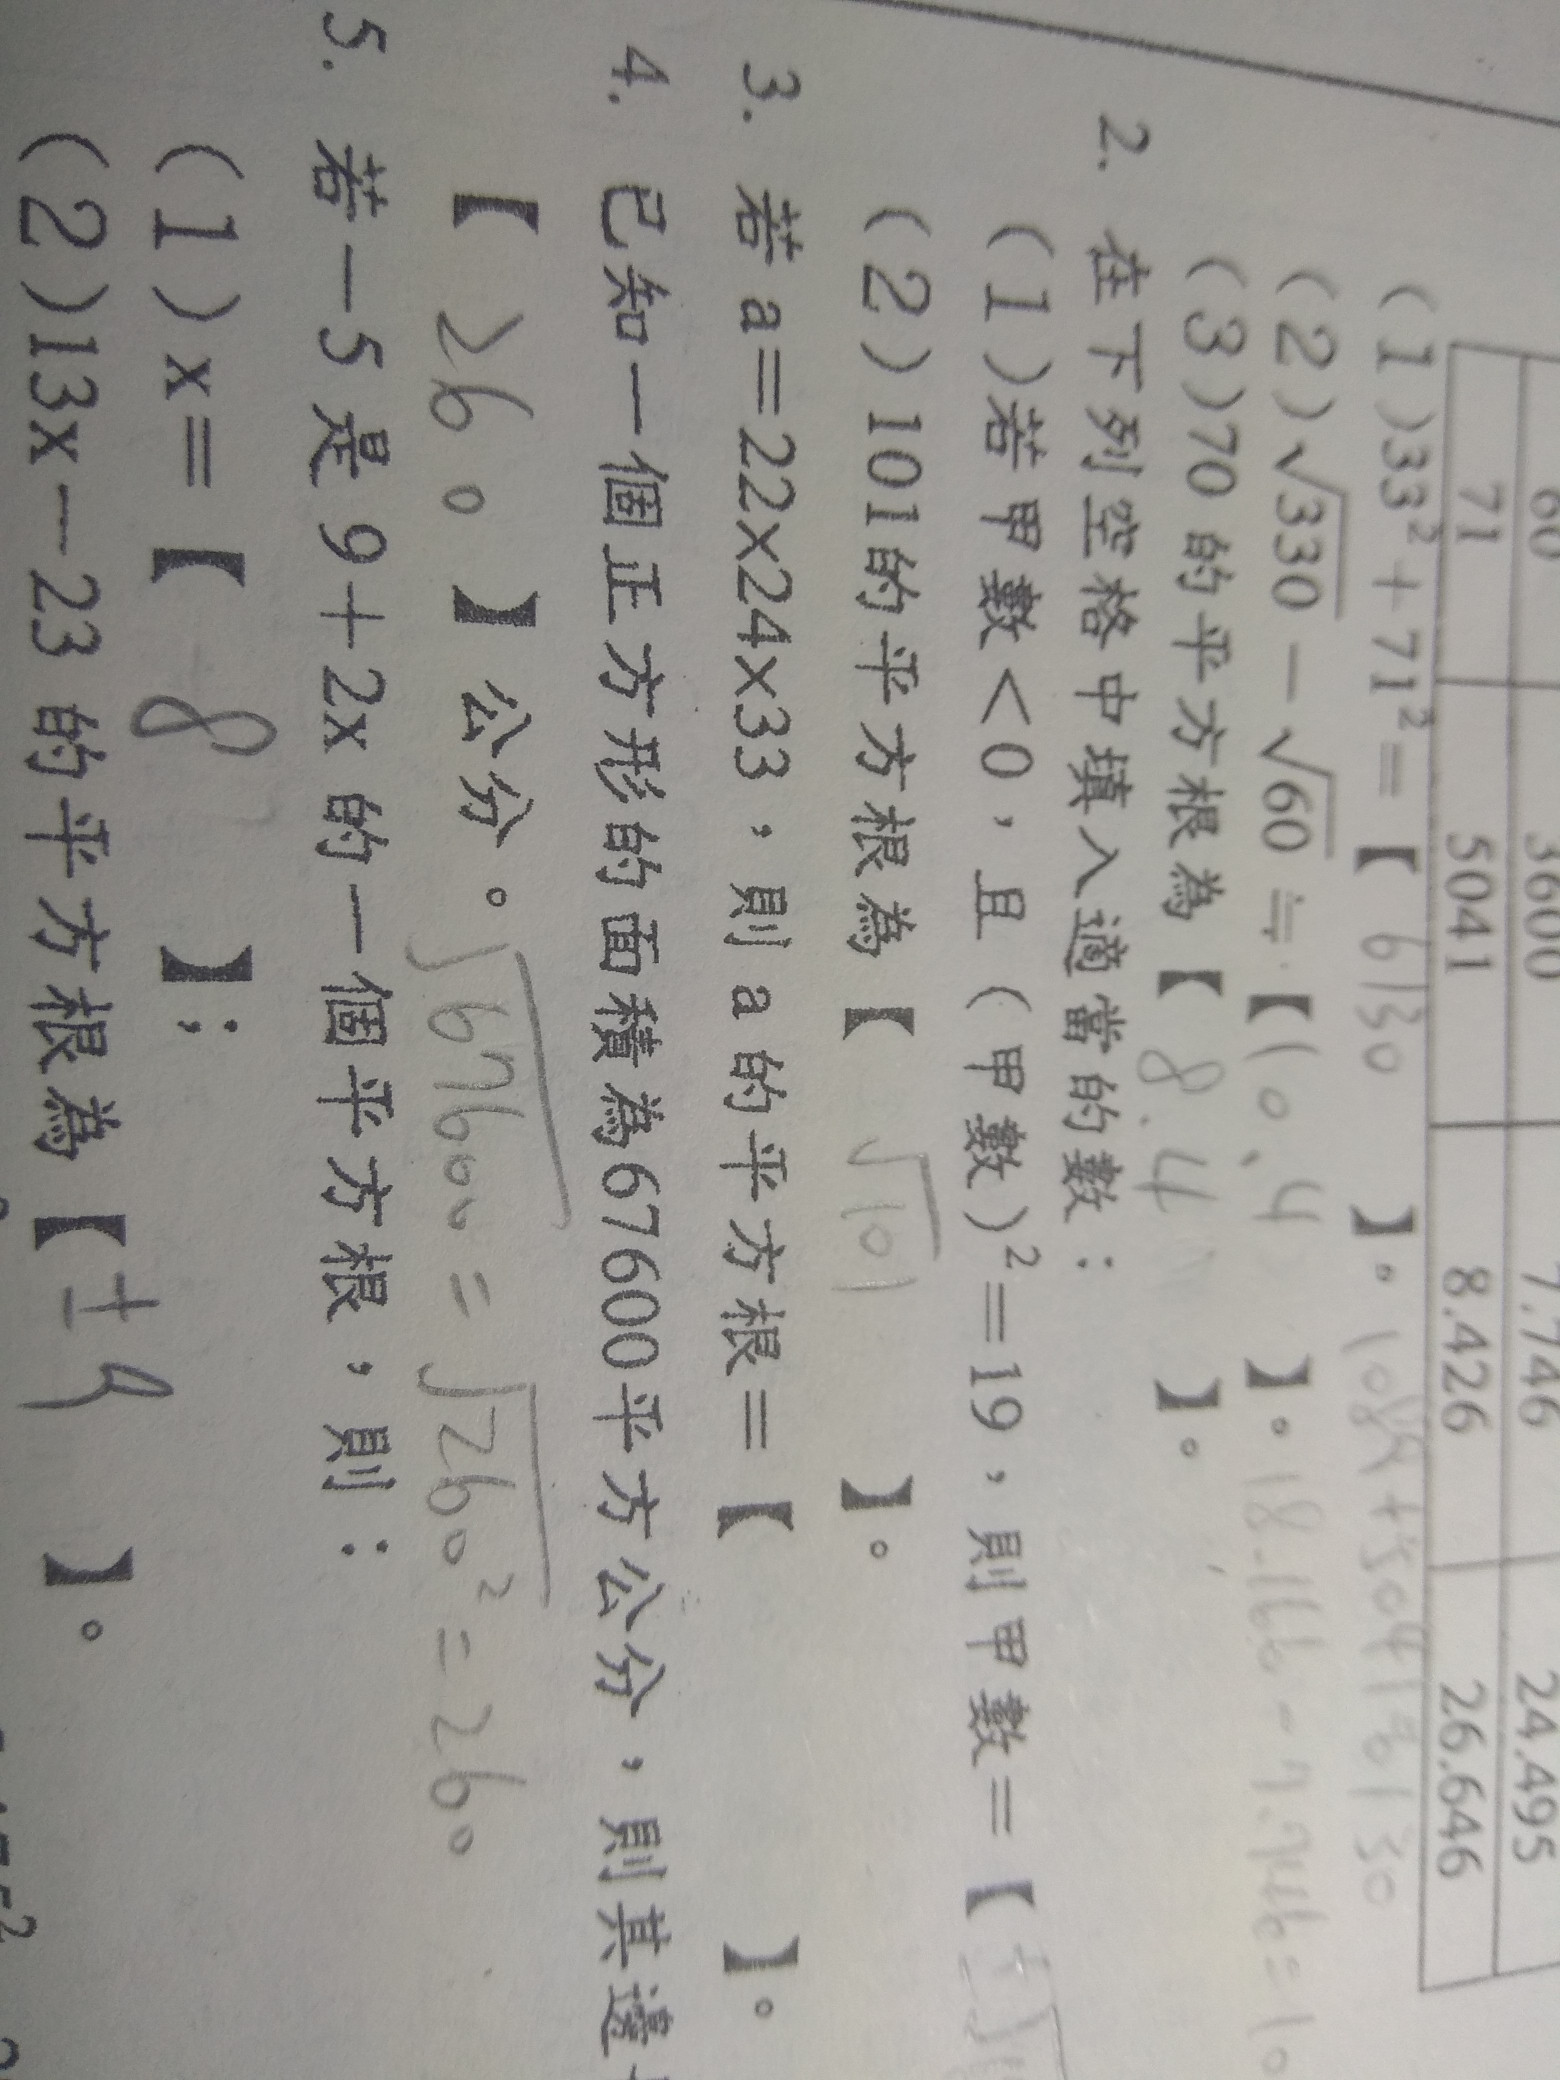 60 3600 7.746 24.495
71 5041 8.426 26.646
(1)33²+71²=【 6130 】。1089+5041=6130
(2)√330－√60≒【10.4 】。18.166-7.746=10
(3)70的平方根為【 8.4 】。
2. 在下列空格中填入適當的數：
(1)若甲數＜0，且(甲數)²=19，則甲數=【
(2)101的平方根為【 √101 】。
3. 若a=22×24×33，則a的平方根=【 】。
4. 已知一個正方形的面積為67600平方公分，則其邊
【 260 】公分。√67600 = √260² = 260
5. 若－5是9+2x的一個平方根，則：
(1)x=【 8 】；
(2)13x－23的平方根為【±9 】。